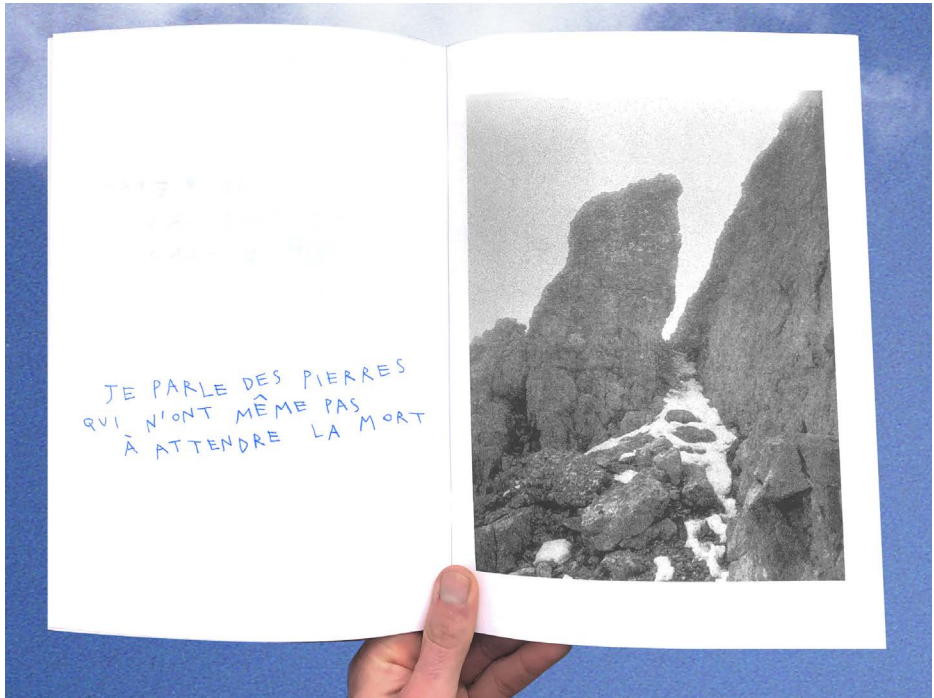 JE PARLE DES PIERRES
QUI N'ONT MÊME PAS
À ATTENDRE LA MORT